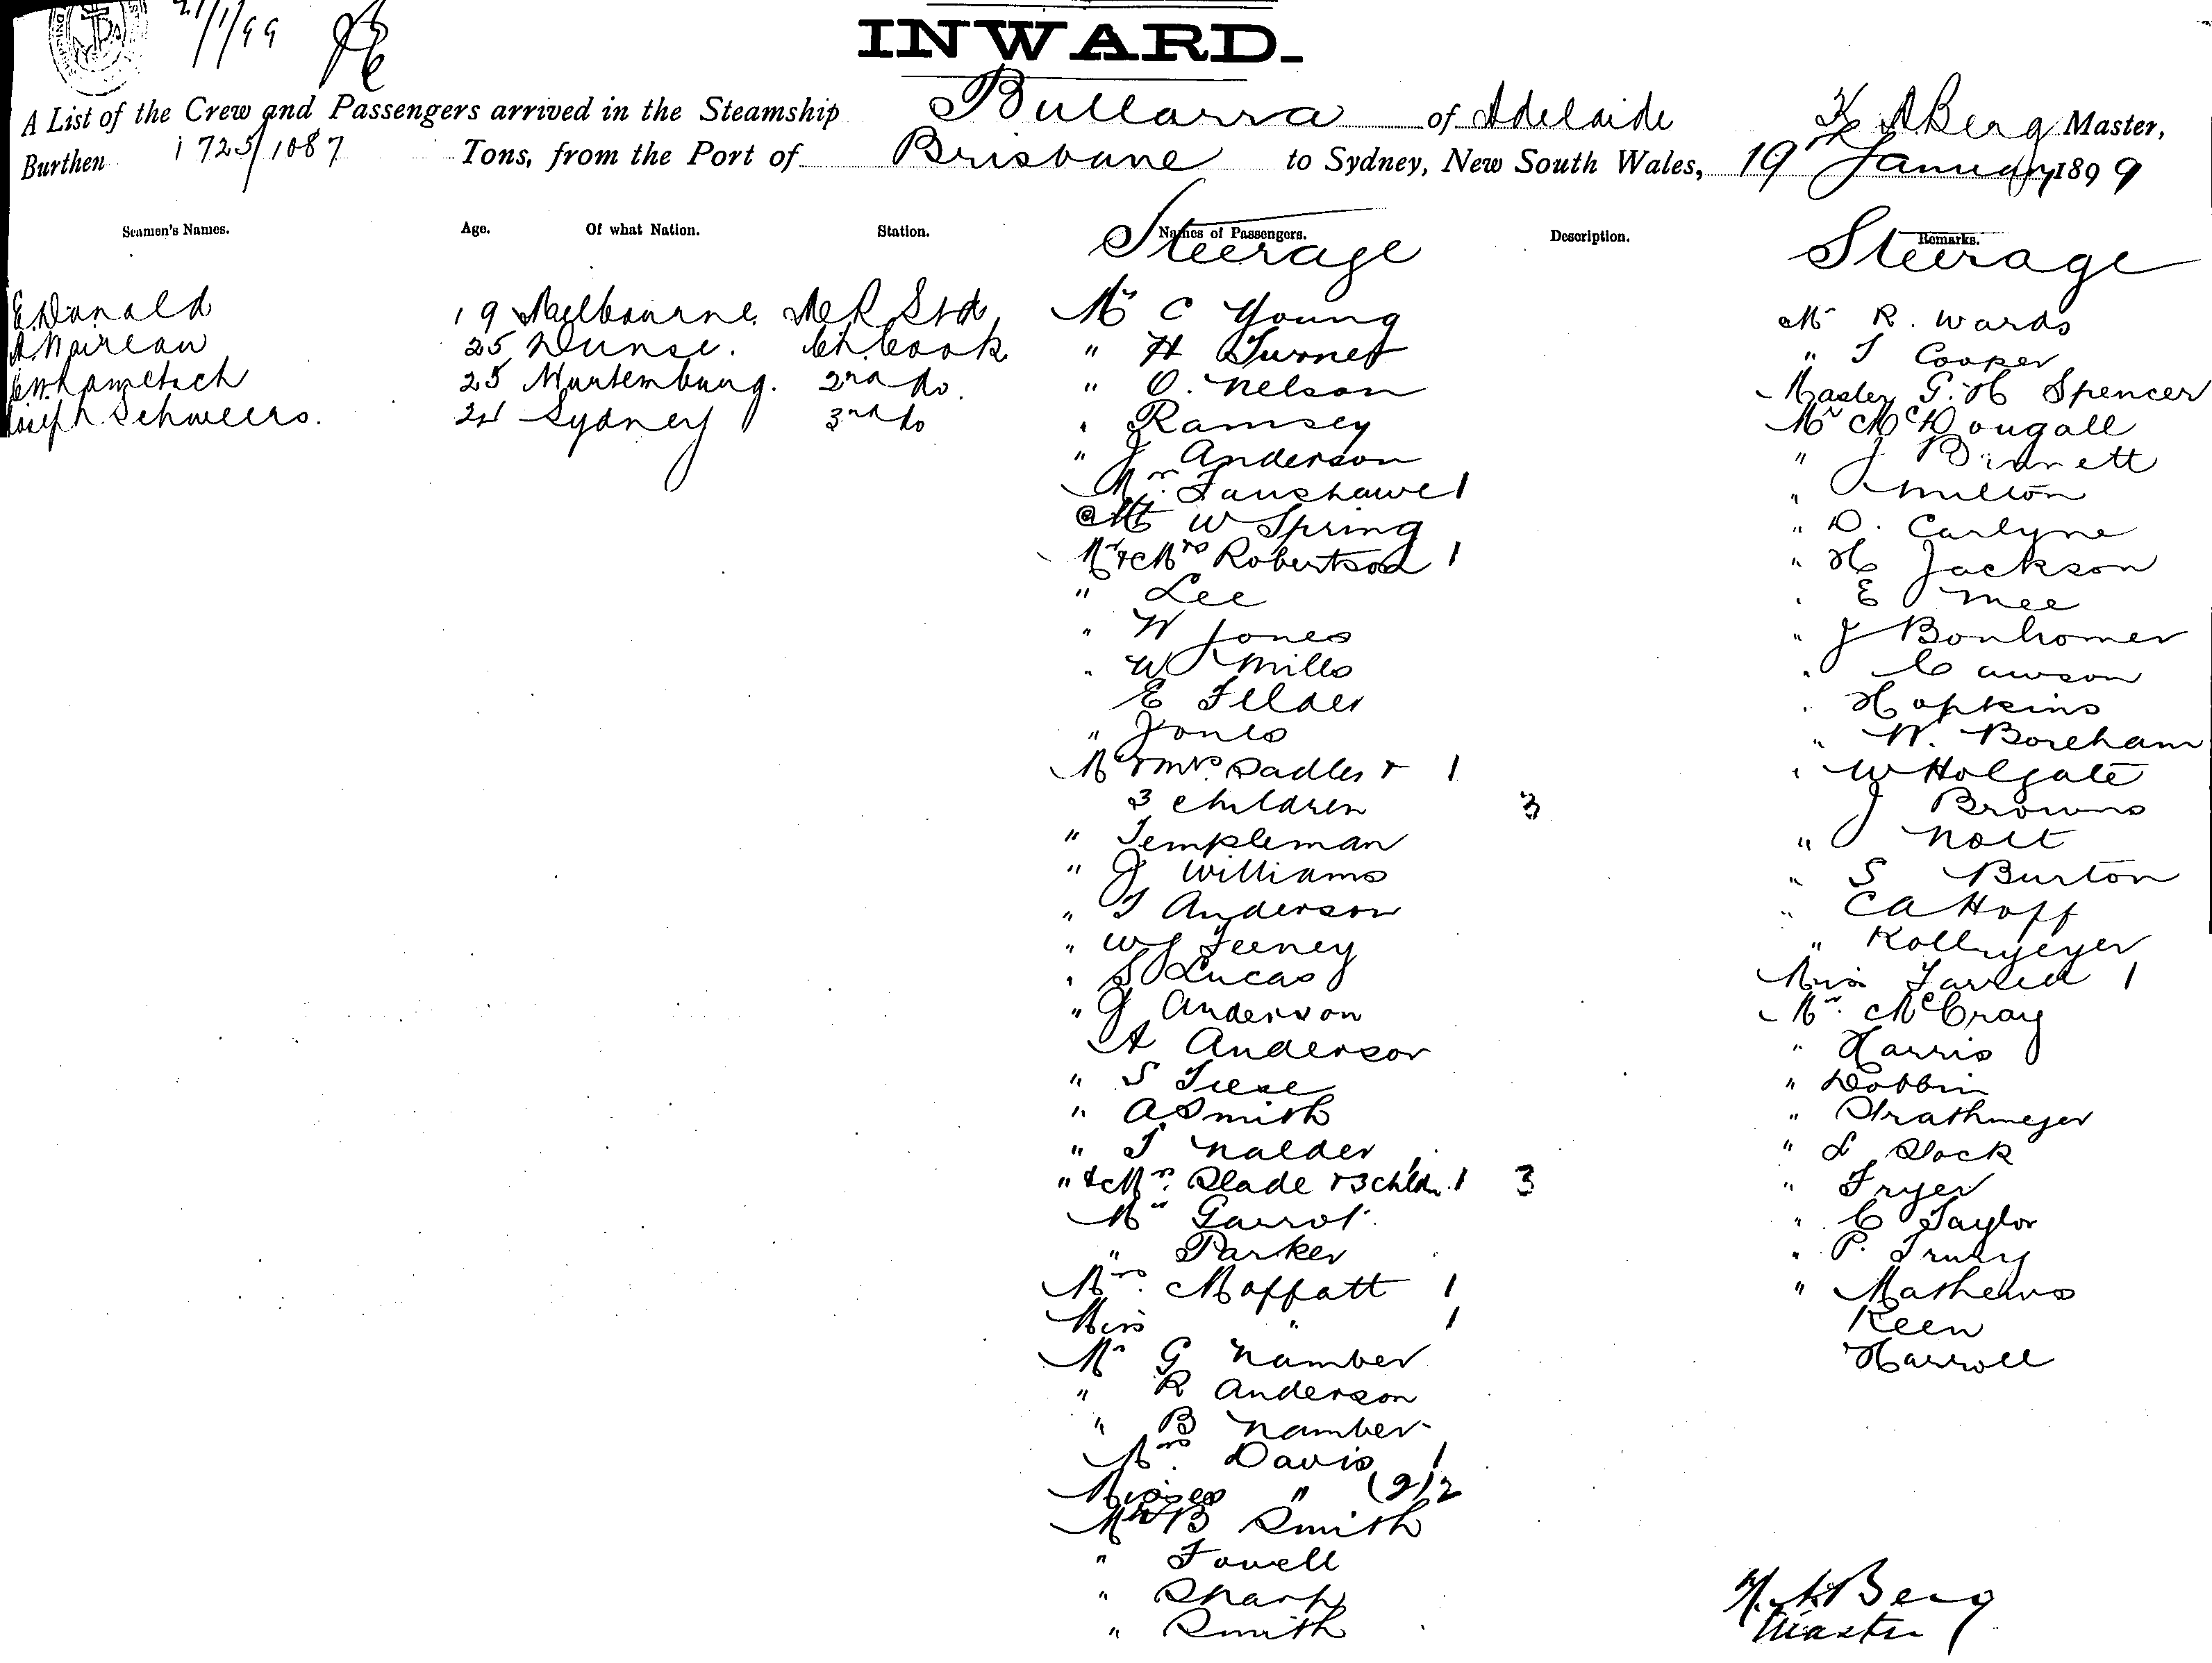 21/1/99
INWARD.
A List of the Crew and Passengers arrived in the Steamship Bullarra of Adelaide H ABerg Master,
Burthen 1725/1087 Tons, from the Port of Brisbane to Sydney, New South Wales, 19th January 1899
Seamen's Names. Age. Of what Nation. Station. Names of Passengers. Description. Remarks.
Steerage Steerage
E. Donald 19 Melbourne
25 Ch. Cook
25 2nd do.
Joseph Schweers. 24 Sydney 3rd do
Mr C Young
" H Turner
" O. Nelson
" Ramsey
" J Anderson
Mrs. Fanshawe 1
Mr W Spring
Mr & Mrs Robertson 1
" Lee
" W Jones
" W Mills
E Felder
" Jones
Mr & Mrs. Sadler & 1
3 children 3
" Templeman
" J Williams
" T Anderson
" W J Feeney
" S Lucas
" J Anderson
A Anderson
" S Trese
" A Smith
" T Nalder
" & Mrs. Slade & 3 chldn. 1 3
Mr Garrot.
" Parker
Mrs. Moffatt 1
Miss " 1
Mr G Namber
" R Anderson
" B Namber
Mrs. Davis 1
Misses " (2) 2
Mr B Smith
" Fowell
" Sharp
" Smith
Mr R. Wards
" T Cooper
Master G. H Spencer
Mr McDougall
" J Binnett
" Milton
" D. Carlyne
" H Jackson
" E Mee
" J Bonhomer
" Cawson
" Hopkins
" W. Boreham
" W Holgate
J Browns
" Nolt
" S Burton
" C A Hoff
" Kollmyeyer
Miss Farrell 1
Mr. McCray
" Harris
" Dobbin
" Strathmeyer
" L Slock
" Fryer
" C Taylor
" P. Truny
" Mathews
Keen
Harroll
H. A Berg
Master